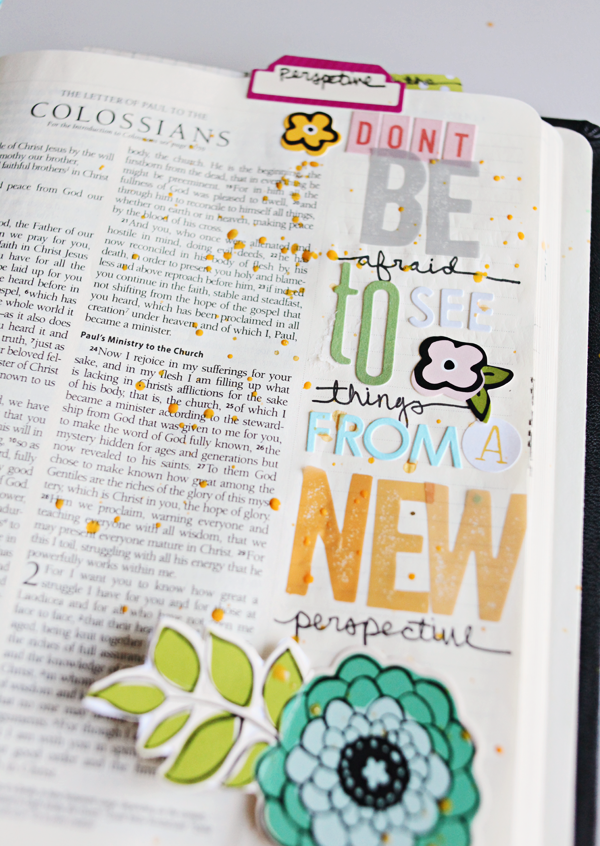 perspective
the
THE LETTER OF PAUL TO THE
COLOSSIANS
For the Introduction to Colossians, see page
le of Christ Jesus by the will
mothy our brother,
faithful brothers in Christ
peace from God our
od, the Father of our
we pray for you,
faith in Christ Jesus
u have for all the
be laid up for you
e heard before in
spel, 6which has
whole world it
—as it also does
u heard it and
truth, 7just as
r beloved fel-
known to us
d, we have
that you
his will in
so as
rd, fully
body, the church. He is the beginning, the
firstborn from the dead, that in everything he
might be preeminent. 19For in him all the
fullness of God was pleased to dwell, 20and
through him to reconcile to himself all things,
whether on earth or in heaven, making peace
by the blood of his cross.
21And you, who once were alienated and
hostile in mind, doing evil deeds, 22he has
now reconciled in his body of flesh by his
death, in order to present you holy and blame-
less and above reproach before him, 23if indeed
you continue in the faith, stable and steadfast,
not shifting from the hope of the gospel that
you heard, which has been proclaimed in all
creation under heaven, and of which I, Paul,
became a minister.
Paul's Ministry to the Church
24Now I rejoice in my sufferings for your
sake, and in my flesh I am filling up what
is lacking in Christ's afflictions for the sake
of his body, that is, the church, 25of which I
became a minister according to the steward-
ship from God that was given to me for you,
to make the word of God fully known, 26the
mystery hidden for ages and generations but
now revealed to his saints. 27To them God
chose to make known how great among the
Gentiles are the riches of the glory of this mys-
tery, which is Christ in you, the hope of glory.
28Him we proclaim, warning everyone and
teaching everyone with all wisdom, that we
may present everyone mature in Christ. 29For
this I toil, struggling with all his energy that he
powerfully works within me.
2 For I want you to know how great a
struggle I have for you and for those at
Laodicea and for all who have not seen me
face to face, 2that their hearts
being knit together
the riches of full assurance
and the knowledge of
DONT
BE
afraid
TO SEE
things
FROM A
NEW
perspective